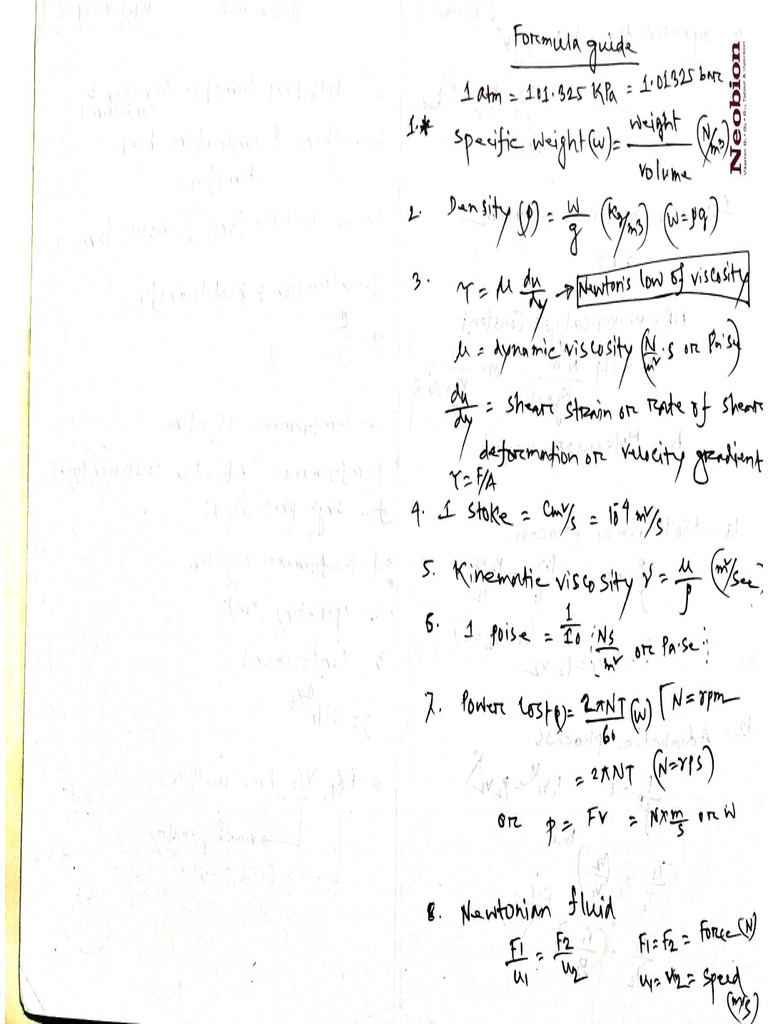 Formula guide
1 atm = 101.325 KPa = 1.01325 bar
1.* Specific weight (w) = weight / volume (N/m3)
Neobion
2. Density (ρ) = w/g (Kg/m3) (w=ρg)
3. τ = μ du/dy → Newton's low of viscosity
μ = dynamic viscosity (N/m² . s or Poise)
du/dy = shear strain or rate of shear
deformation or velocity gradient
τ = F/A
4. 1 stoke = cm²/s = 10-4 m²/s
5. Kinematic viscosity ν = μ/ρ (m²/sec)
6. 1 poise = 1/10 Ns/m² or Poise
7. Power lost (p) = 2πNT/60 (W) [N = rpm
= 2πNT (N=rps)
or p = FV = N×m/s or W
8. Newtonian fluid
F1/u1 = F2/u2 F1=F2 = Force (N)
u1=u2= speed
(m/s)